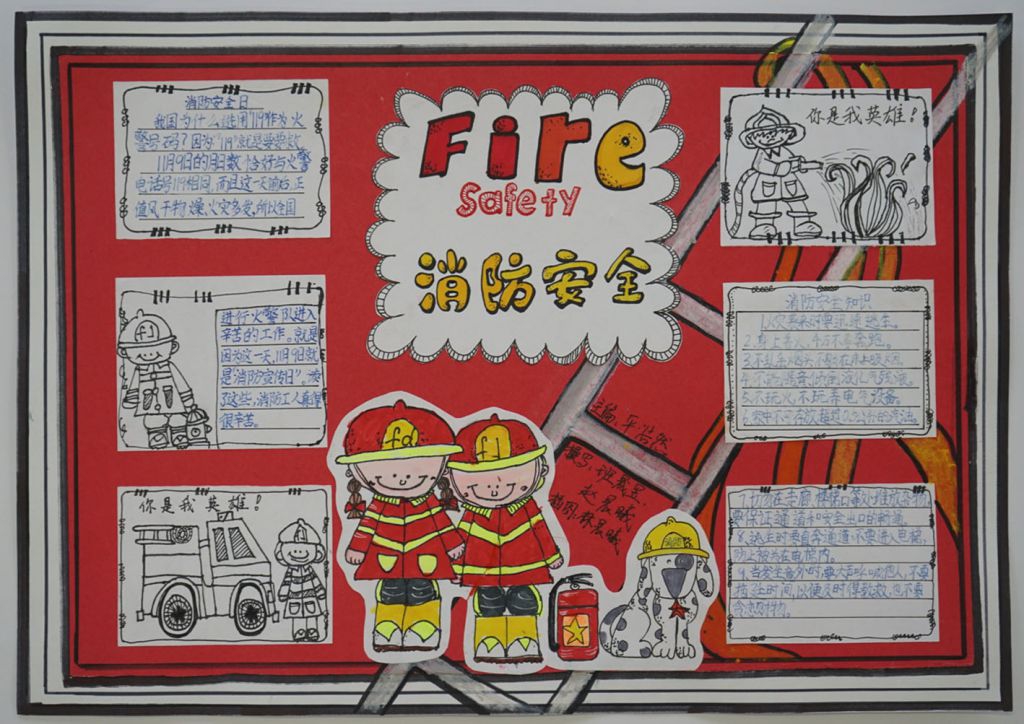 消防安全日
我国为什么选用"119"作为火
警号码?因为"119"就是要要救
11月9日的月日数恰好与火警
电话号119相同,而且这一天前后,正
值风干物燥、火灾多发,所以全国
进行火警队进入
辛苦的工作。就是
因为这一天,11月9日就
是"消防宣传日"。读
了这些,消防工人真得
很辛苦。
你是我英雄!
Fire
Safety
消防安全
fd
fd
fd
主编:
你是我英雄!
消防安全知识
1.火灾袭来时要迅速逃生。
2.身上着火,千万不要奔跑。
3.不乱丢烟头,不躺在床上吸烟。
5.不玩火,不玩弄电气设备。
6.家中不可存放超过0.5公斤的汽油。
要保证通道和安全出口的畅通。
8.逃生时要自奔通道,不要进入电梯,
防止被关在电梯内。
9.当发生意外时,要大声呼喊他人,不要
拖延时间,以便及时得救,也不要
贪恋财物。